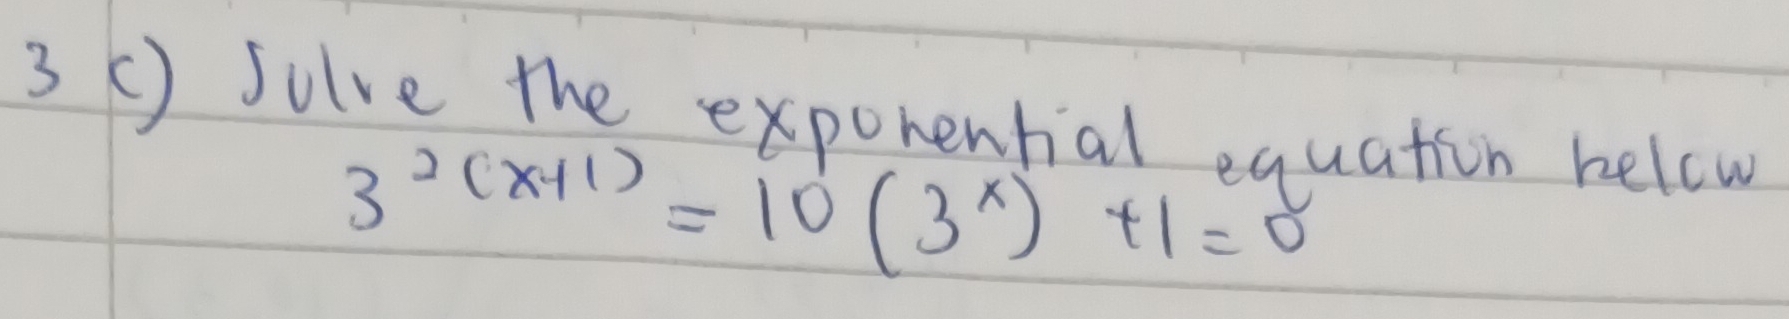 3 c) Solve the exponential equation below
3^2(x+1) = 10(3^x) +1=0